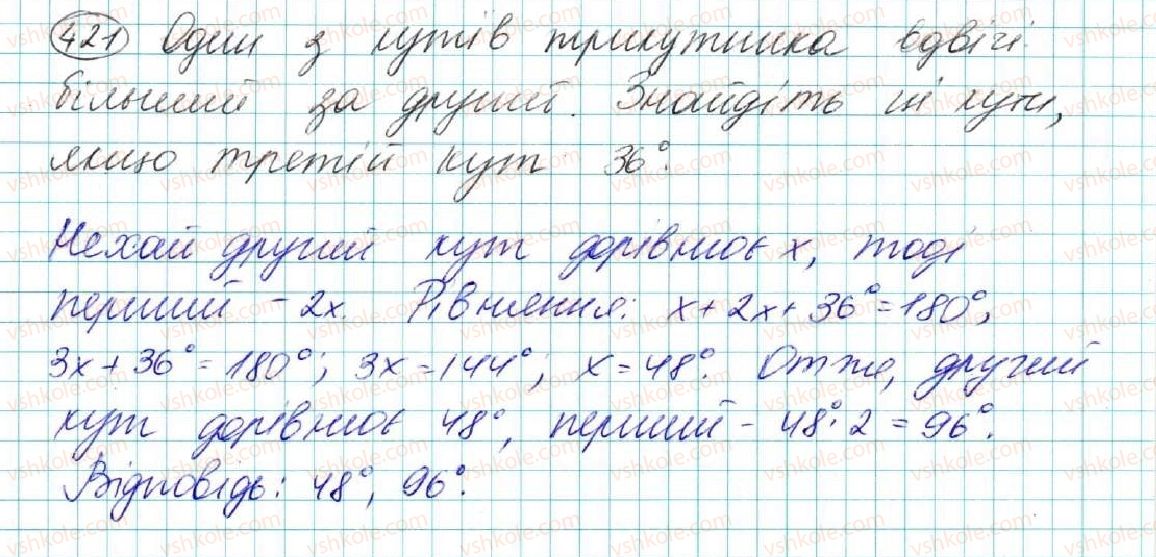 421 Один з кутів трикутника вдвічі
більший за другий. Знайдіть ці кути,
якщо третій кут 36°.
Нехай другий кут дорівнює x, тоді
перший - 2x. Рівняння: x + 2x + 36° = 180°,
3x + 36° = 180°; 3x = 144°; x = 48°. Отже, другий
кут дорівнює 48°, перший - 48°·2 = 96°.
Відповідь: 48°, 96°.